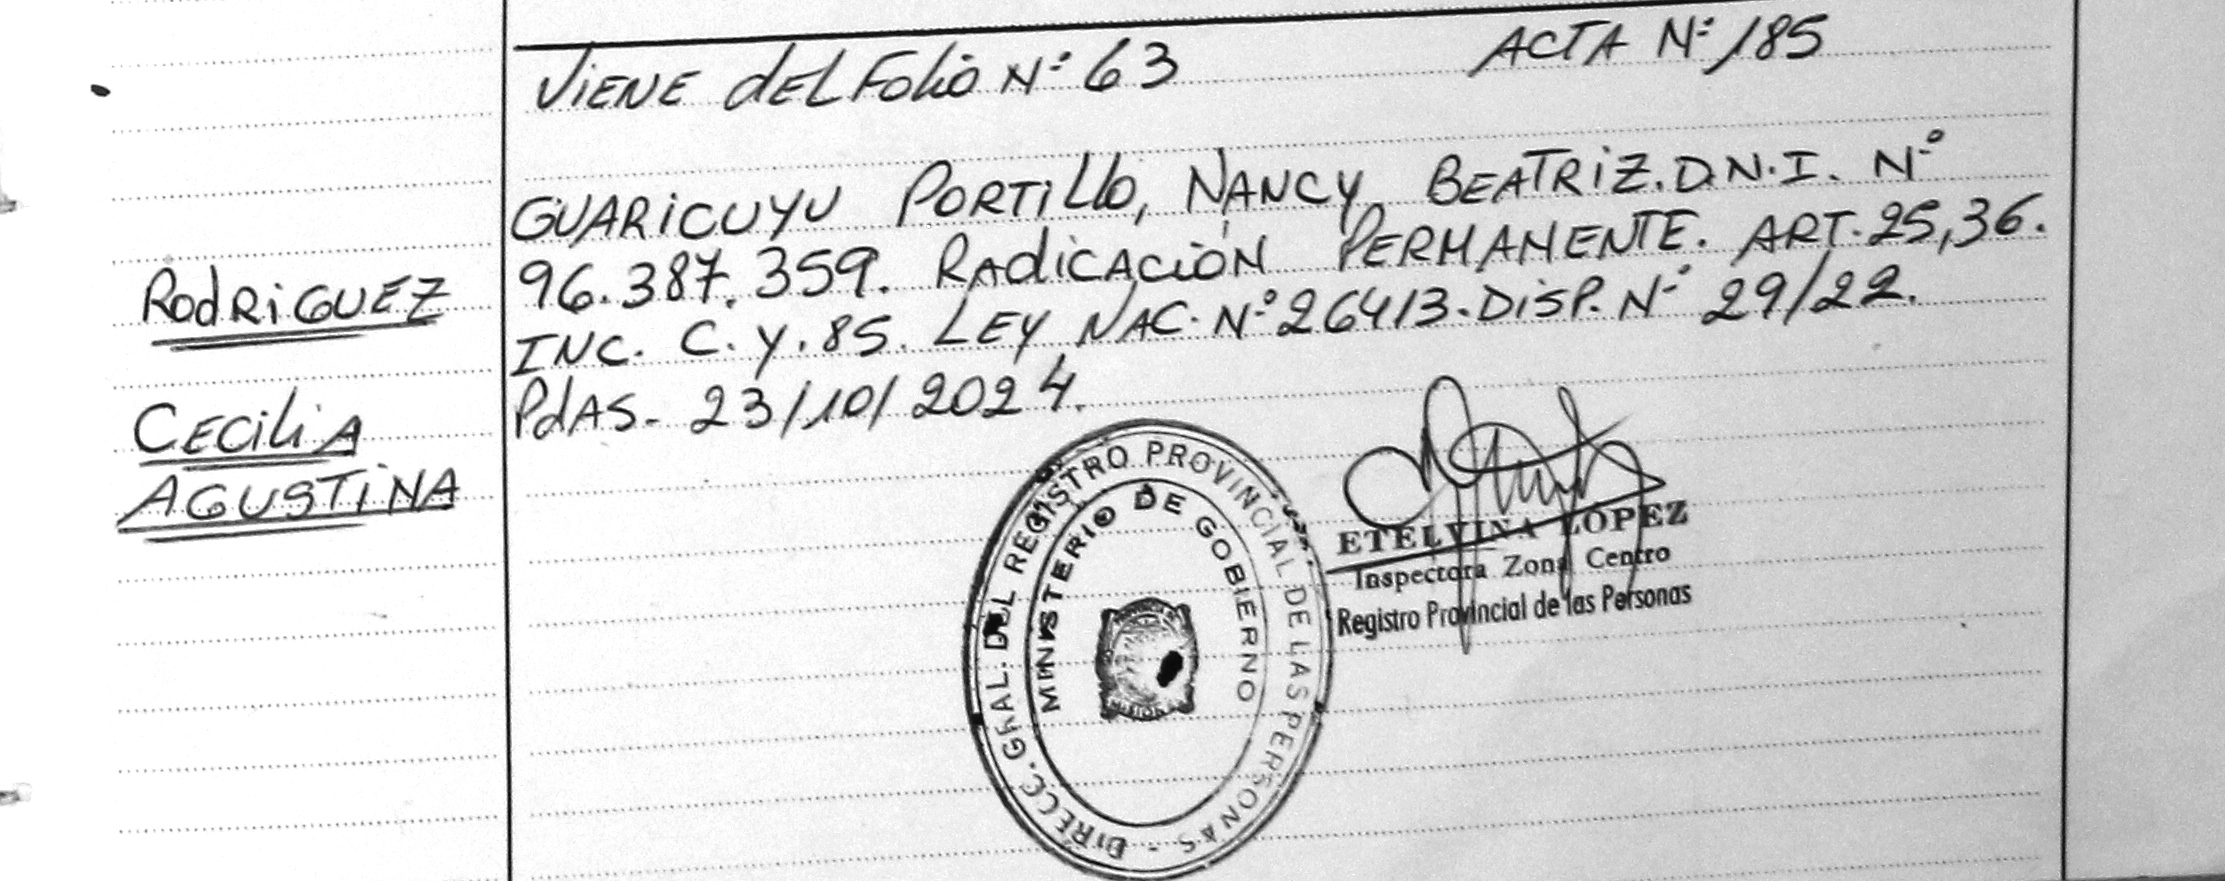 VIENE dEL Folio N° 63 ACTA N° 185
GUARICUYU PORTILLO, NANCY BEATRIZ. D.N.I. N°
96.387.359. RAdICACIÓN PERMANENTE. ART. 25,36.
INC. C. Y. 85. LEY NAC. N° 26413. DISP. N° 29/22.
PdAS. 23/10/2024.
RodRiGUEZ
CECiliA
AGUSTINA
DIRECC. GRAL. DEL REGISTRO PROVINCIAL DE LAS PERSONAS -
MINISTERIO DE GOBIERNO
ETELVINA LOPEZ
Inspectora Zona Centro
Registro Provincial de las Personas